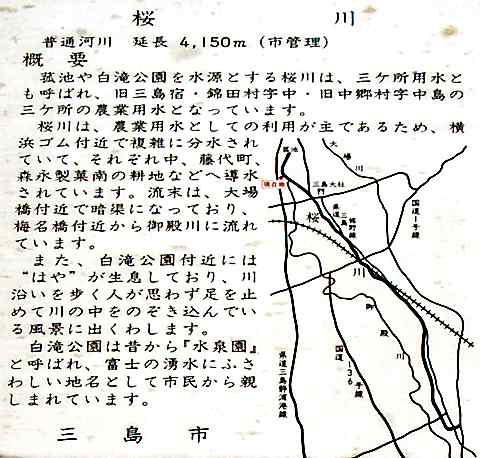 桜　川
普通河川　延長 4,150m（市管理）
概　要
菰池や白滝公園を水源とする桜川は、三ケ所用水と
も呼ばれ、旧三島宿・錦田村字中・旧中郷村字中島の
三ケ所の農業用水となっています。
桜川は、農業用水としての利用が主であるため、横
浜ゴム付近で複雑に分水され
ていて、それぞれ中、藤代町、
森永製菓南の耕地などへ導水
されています。流末は、大場
橋付近で暗渠になっており、
梅名橋付近から御殿川に流れ
ています。
また、白滝公園付近には
“はや”が生息しており、川
沿いを歩く人が思わず足を止
めて川の中をのぞき込んでい
る風景に出くわします。
白滝公園は昔から『水泉園』
と呼ばれ、富士の湧水にふさ
わしい地名として市民から親
しまれています。
三　島　市
菰池
現在地
三島大社
大場川
国道1号線
県道三島裾野線
桜川
御殿川
国道136号線
県道三島静浦港線